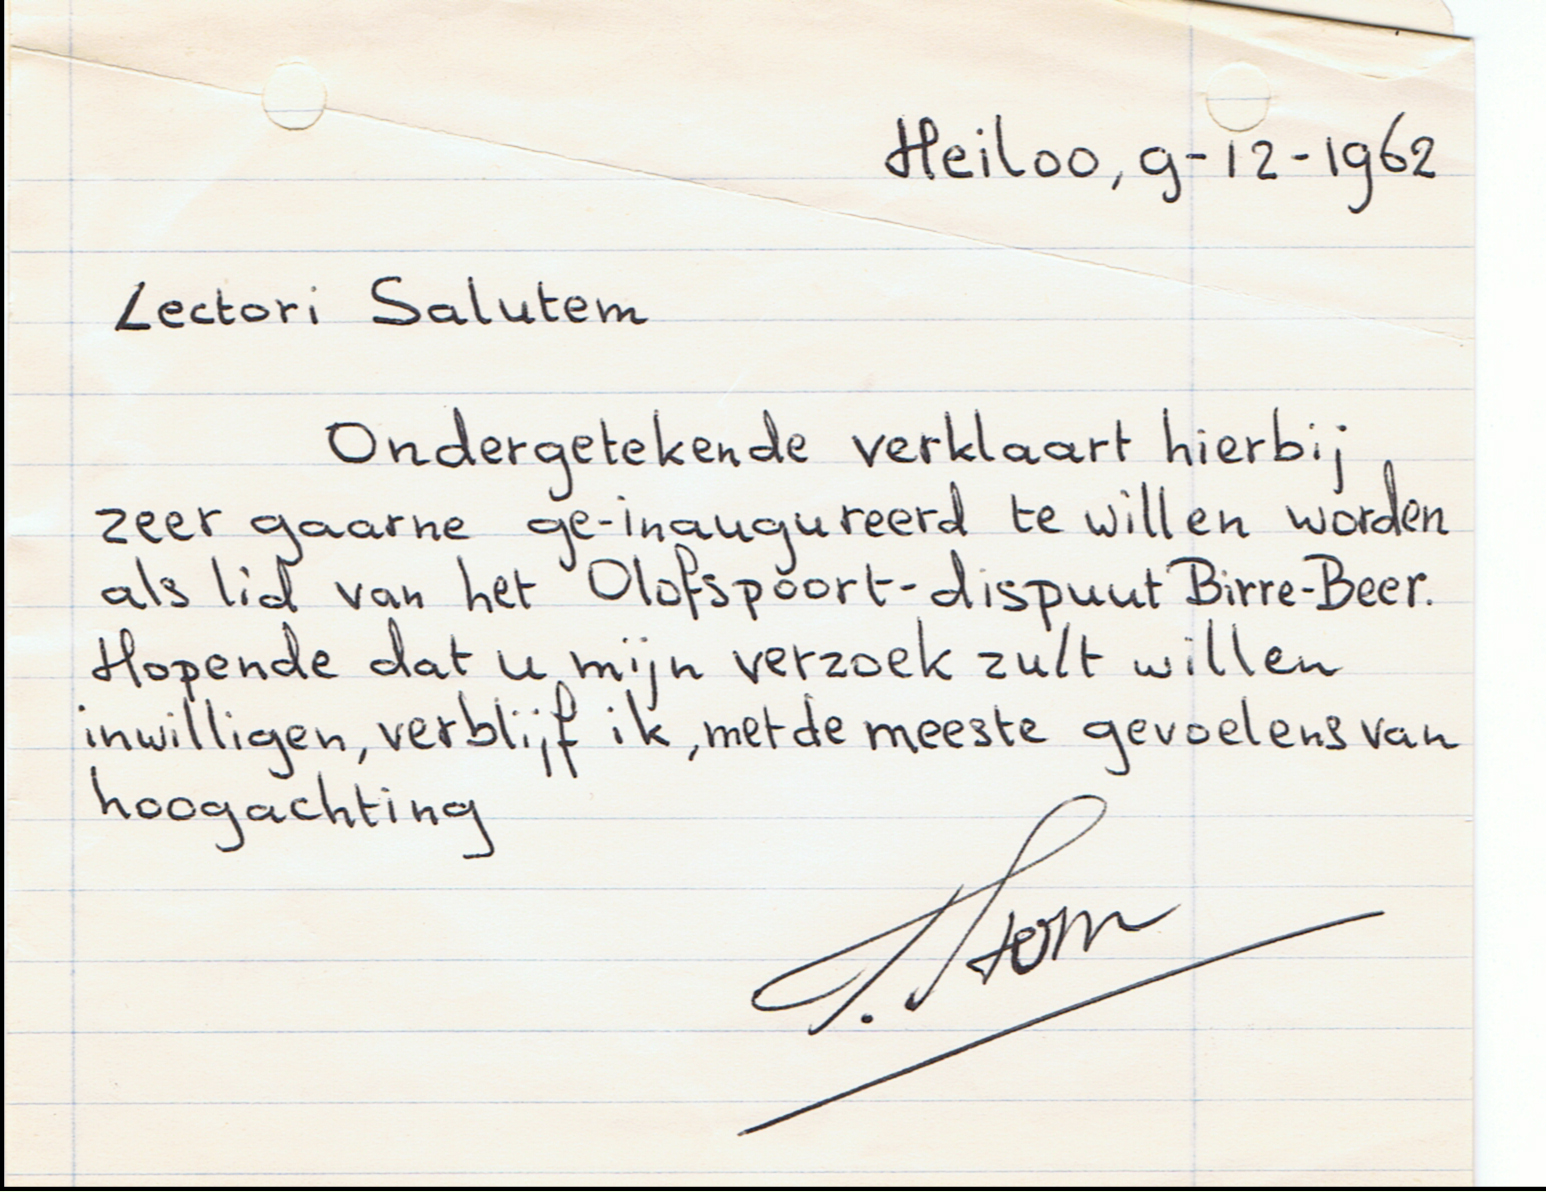 Heiloo, 9-12-1962
Lectori Salutem
Ondergetekende verklaart hierbij
zeer gaarne ge-inaugureerd te willen worden
als lid van het Olofspoort-dispuut Birre-Beer.
Hopende dat u mijn verzoek zult willen
inwilligen, verblijf ik, met de meeste gevoelens van
hoogachting